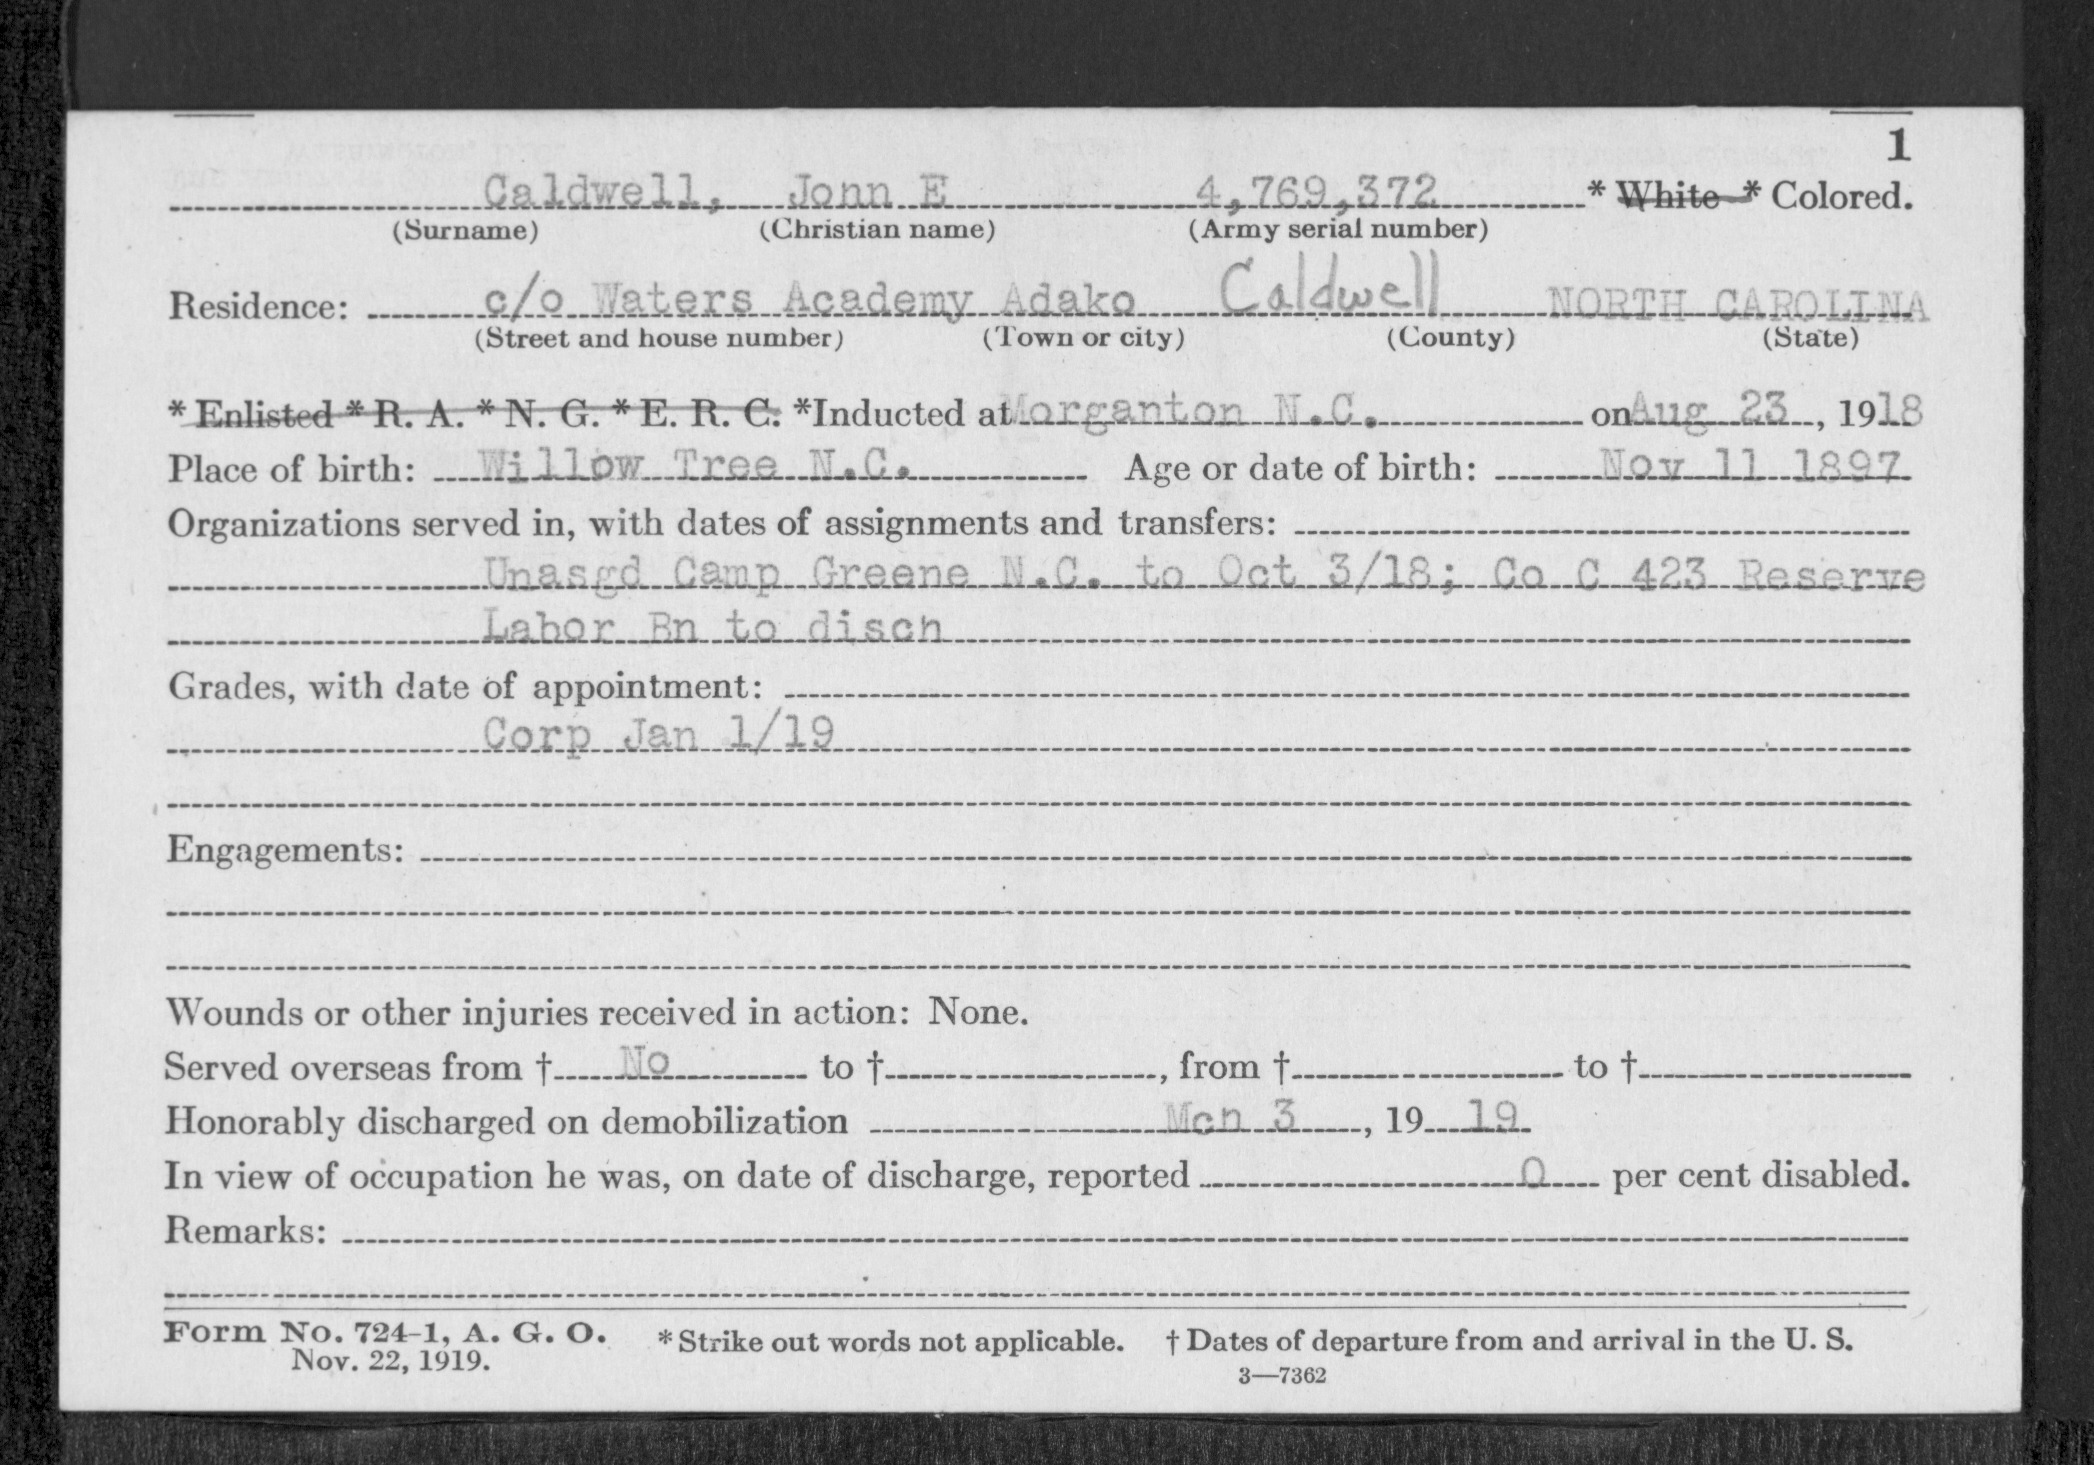 1
Caldwell, John E 4,769,372 * White * Colored.
(Surname) (Christian name) (Army serial number)
Residence: c/o Waters Academy Adako Caldwell NORTH CAROLINA
(Street and house number) (Town or city) (County) (State)
* Enlisted * R. A. * N. G. * E. R. C. *Inducted at Morganton N.C. on Aug 23, 1918
Place of birth: Willow Tree N.C. Age or date of birth: Nov 11 1897
Organizations served in, with dates of assignments and transfers:
Unasgd Camp Greene N.C. to Oct 3/18; Co C 423 Reserve
Labor Bn to disch
Grades, with date of appointment:
Corp Jan 1/19
Engagements:
Wounds or other injuries received in action: None.
Served overseas from † No to †, from † to †
Honorably discharged on demobilization Mch 3, 19 19
In view of occupation he was, on date of discharge, reported 0 per cent disabled.
Remarks:
Form No. 724-1, A. G. O. * Strike out words not applicable. † Dates of departure from and arrival in the U. S.
Nov. 22, 1919.
3—7362